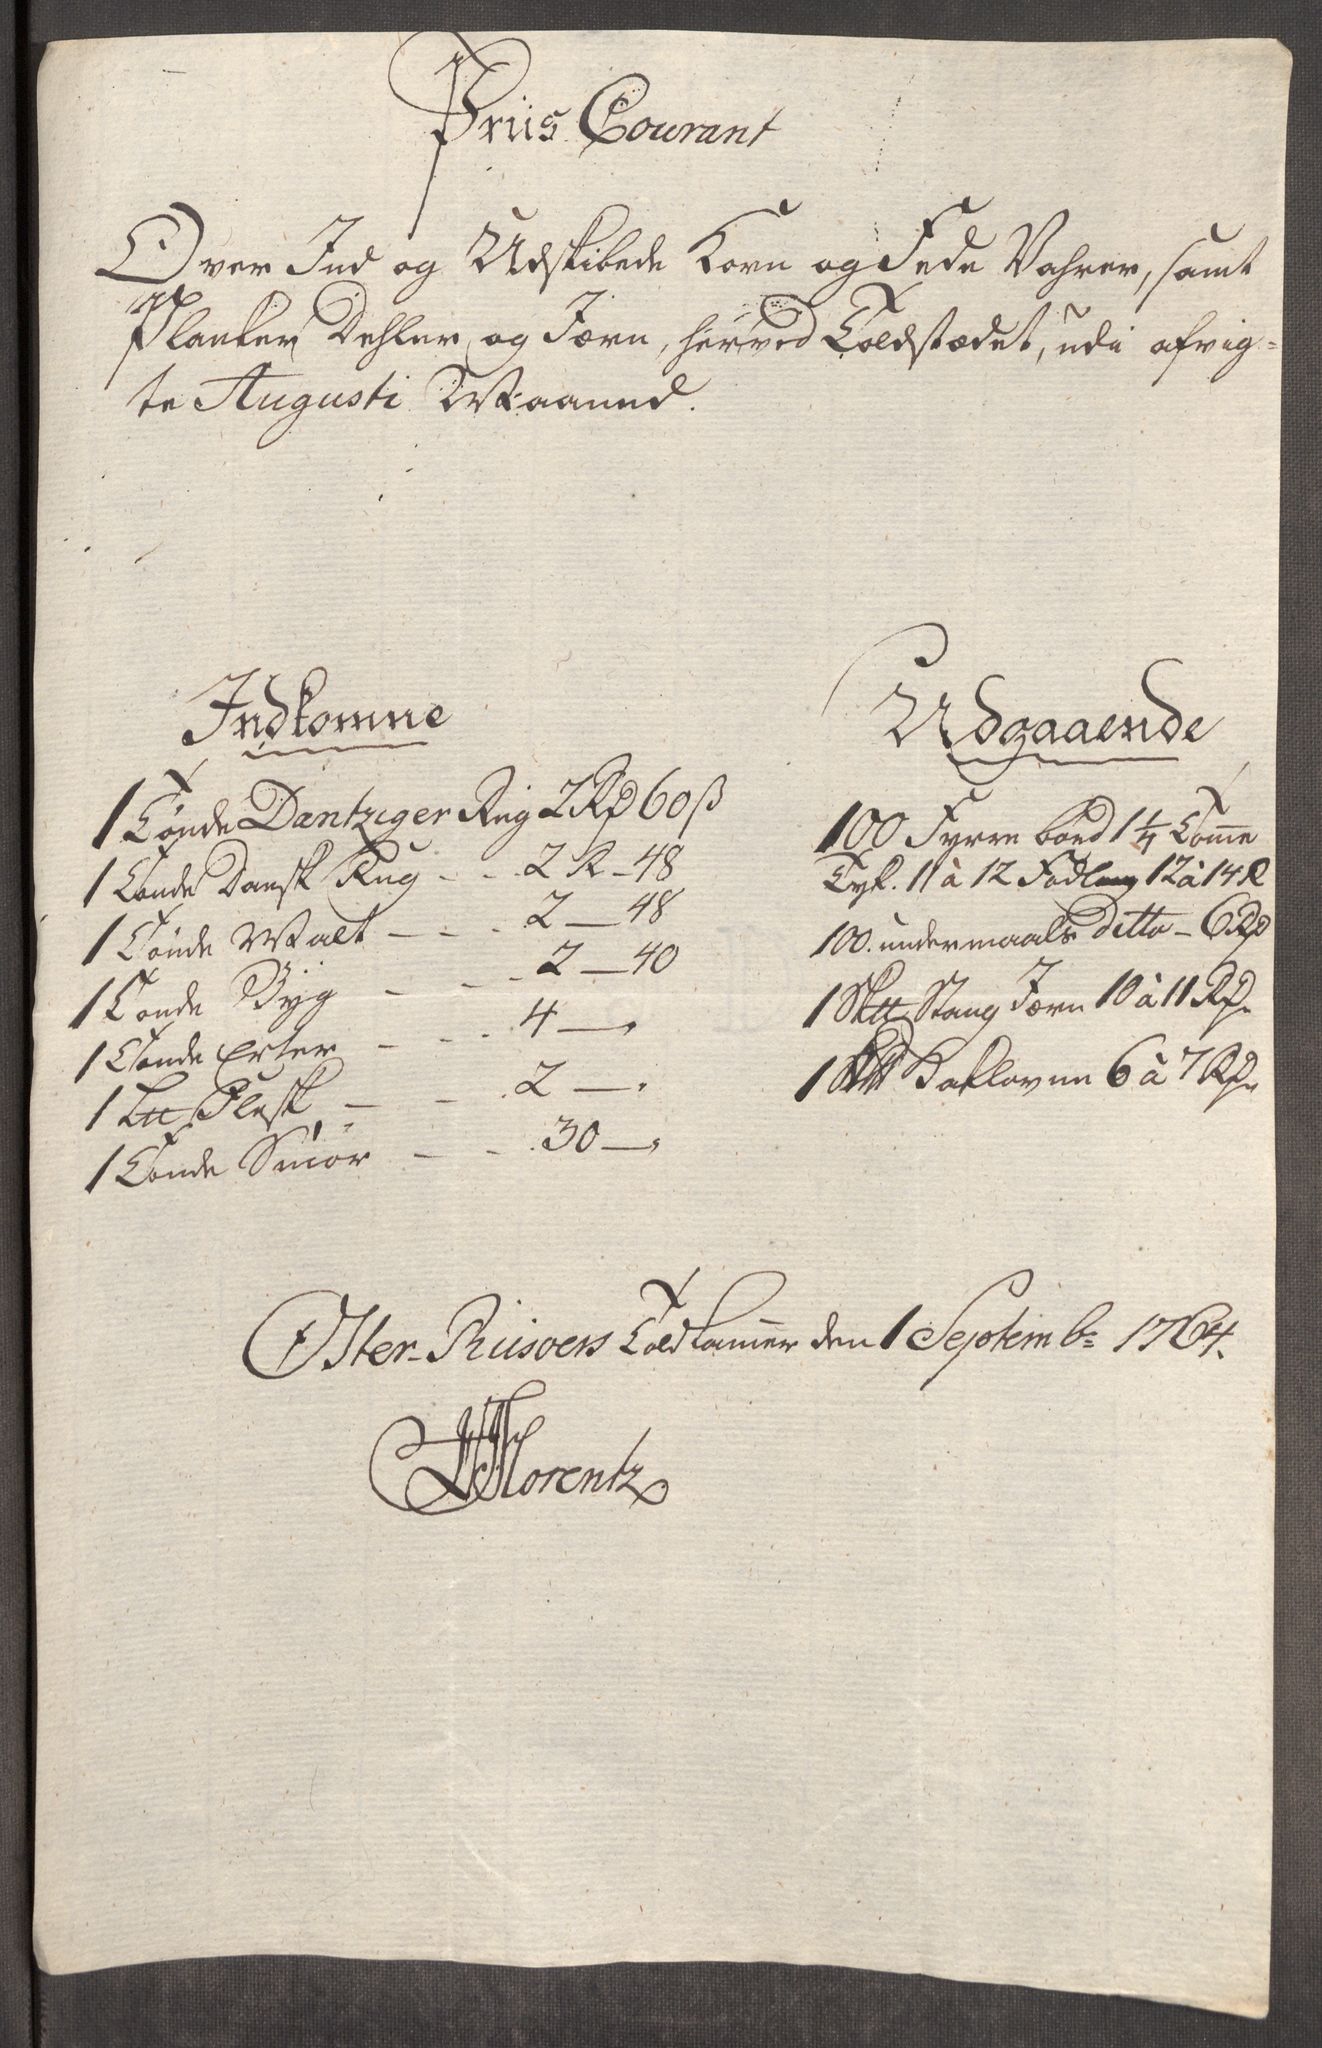 Priis Courant
Over Ind og Udskibede Korn og Fede Vahrer, samt
Planker Dehler og Jern, herved Toldstædet, udi afvig=
te Augusti Maaned.
Indkomne
1 Tønde Dantziger Rug 2 Rd 60 ß
1 Tønde Dansk Rug - - 2 R - 48
1 Tønde Malt - - - 2 - 48
1 Tønde Byg - - - 2 - 40
1 Tønde Erter - - - 4 - "
1 L℔ Flesk - - - 2 - "
1 Tønde Smør - - - 30 - "
Udgaaende
100 Fyrre bord 1 1/4 Tomme
Tyk. 11 à 12 Fod lang 12 à 14 R
100. undermaals ditto - 6 Rd
1 Sk℔ Stang Jern 10 à 11 Rd.
1 Sk℔ Kakloune 6 à 7 Rd.
Øster-Riisøers Toldkammer den 1 Septemb= 1764.
Lorentz